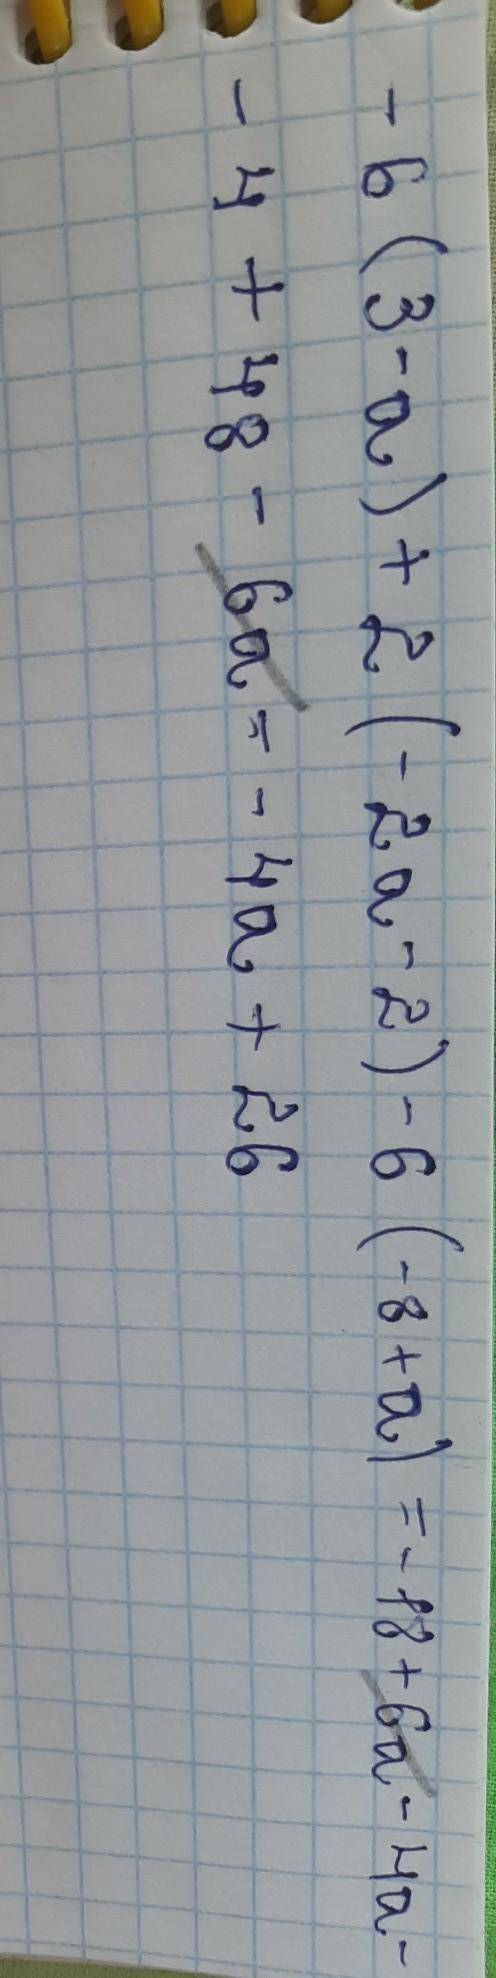 -6(3-a)+2(-2a-2)-6(-8+a)=-18+6a-4a-
-4+48-6a=-4a+26